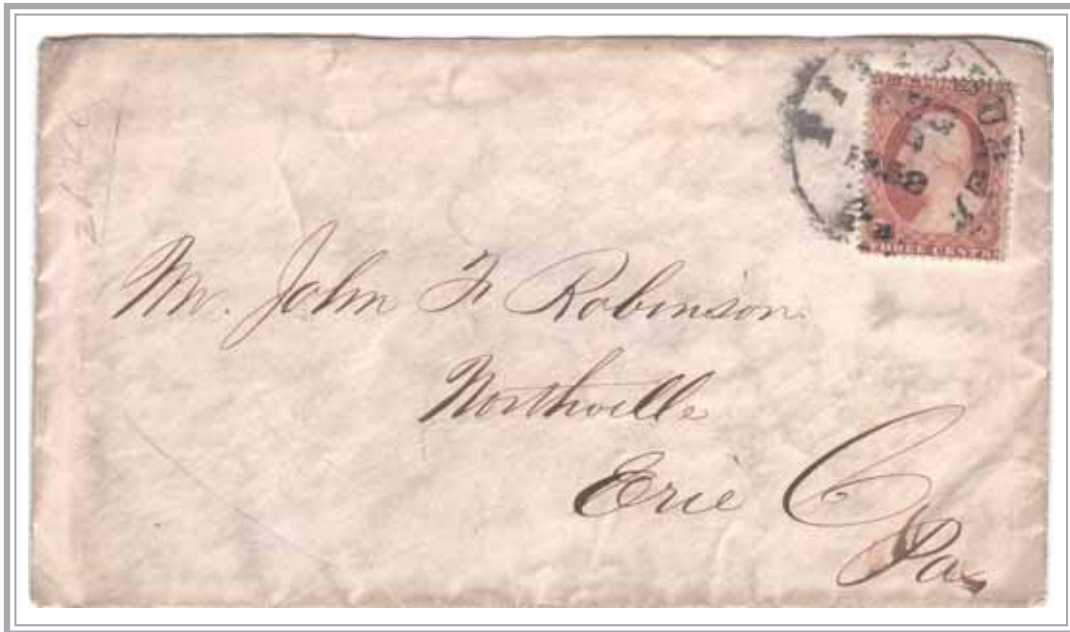 THREE CENTS
Mr. John F Robinson
Northville
Erie Co
Pa